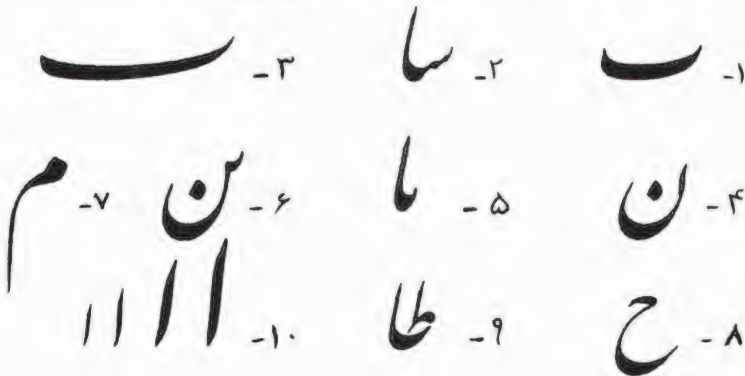 ۱- ٮ ۲- سا ۳- ٮ
۴- ن ۵- ٮا ۶- سن ۷- م
۸- ح ۹- طا ۱۰- ا ا ا ا